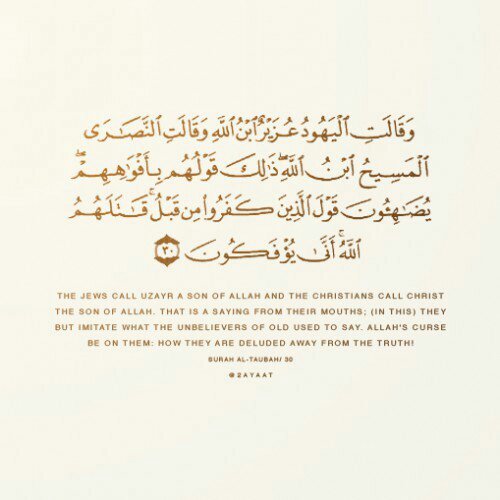 وَقَالَتِ الْيَهُودُ عُزَيْرٌ ابْنُ اللَّهِ وَقَالَتِ النَّصَـٰرَى
الْمَسِيحُ ابْنُ اللَّهِ ۖ ذَٰلِكَ قَوْلُهُم بِأَفْوَٰهِهِمْ ۖ
يُضَـٰهِـُٔونَ قَوْلَ الَّذِينَ كَفَرُوا۟ مِن قَبْلُ ۚ قَـٰتَلَهُمُ
اللَّهُ ۚ أَنَّىٰ يُؤْفَكُونَ ٣٠
THE JEWS CALL UZAYR A SON OF ALLAH AND THE CHRISTIANS CALL CHRIST
THE SON OF ALLAH. THAT IS A SAYING FROM THEIR MOUTHS; (IN THIS) THEY
BUT IMITATE WHAT THE UNBELIEVERS OF OLD USED TO SAY. ALLAH'S CURSE
BE ON THEM: HOW THEY ARE DELUDED AWAY FROM THE TRUTH!
SURAH AL-TAUBAH/ 30
@2AYAAT